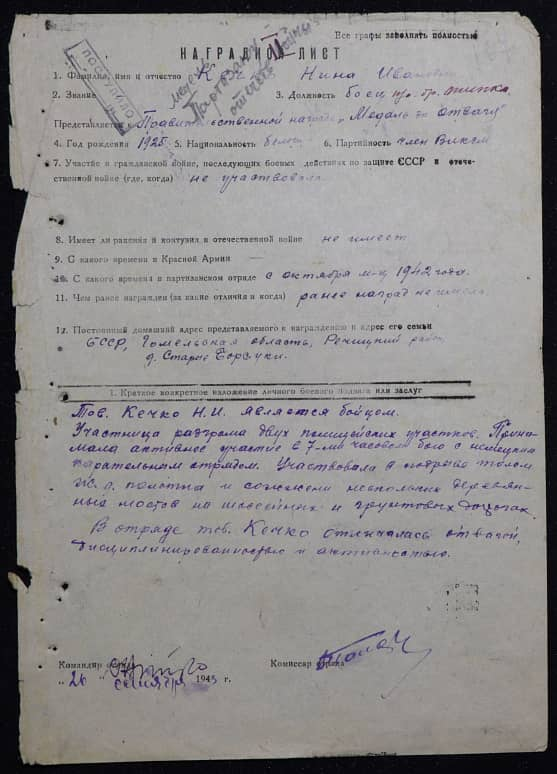 Все графы заполнять полностью
НАГРАДНОЙ ЛИСТ
ПОСТУПИЛО
1. Фамилия, имя и отчество Нина
2. Звание 3. Должность боец
Представляется к Правительственной награде „Медаль за отвагу"
4. Год рождения 1925 5. Национальность 6. Партийность член ВЛКСМ
7. Участие в гражданской войне, последующих боевых действиях по защите СССР и отече-
ственной войне (где, когда) не участвовала
8. Имеет ли ранения и контузии в отечественной войне не имеет
9. С какого времени в Красной Армии
10. С какого времени в партизанском отряде с октября м-ц 1942 года.
11. Чем ранее награжден (за какие отличия и когда) ранее наград не имела
12. Постоянный домашний адрес представляемого к награждению и адрес его семьи
БССР, Гомельская область, Речицкий район
д. Старые Борсуки.
1. Краткое конкретное изложение личного боевого подвига или заслуг
Тов. Кечко Н.И. является бойцом.
Участница разгрома двух полицейских участков. Прини-
мала активное участие в 7-ми часовом бою с немецким
карательным отрядом. Участвовала в подрыве толом
ж.д. полотна и сожжении нескольких деревян-
ных мостов на шоссейных и грунтовых дорогах.
В отряде тов. Кечко отличалась отвагой,
дисциплинированностью и активностью.
Командир Комиссар
„26" сентября 1943 г.